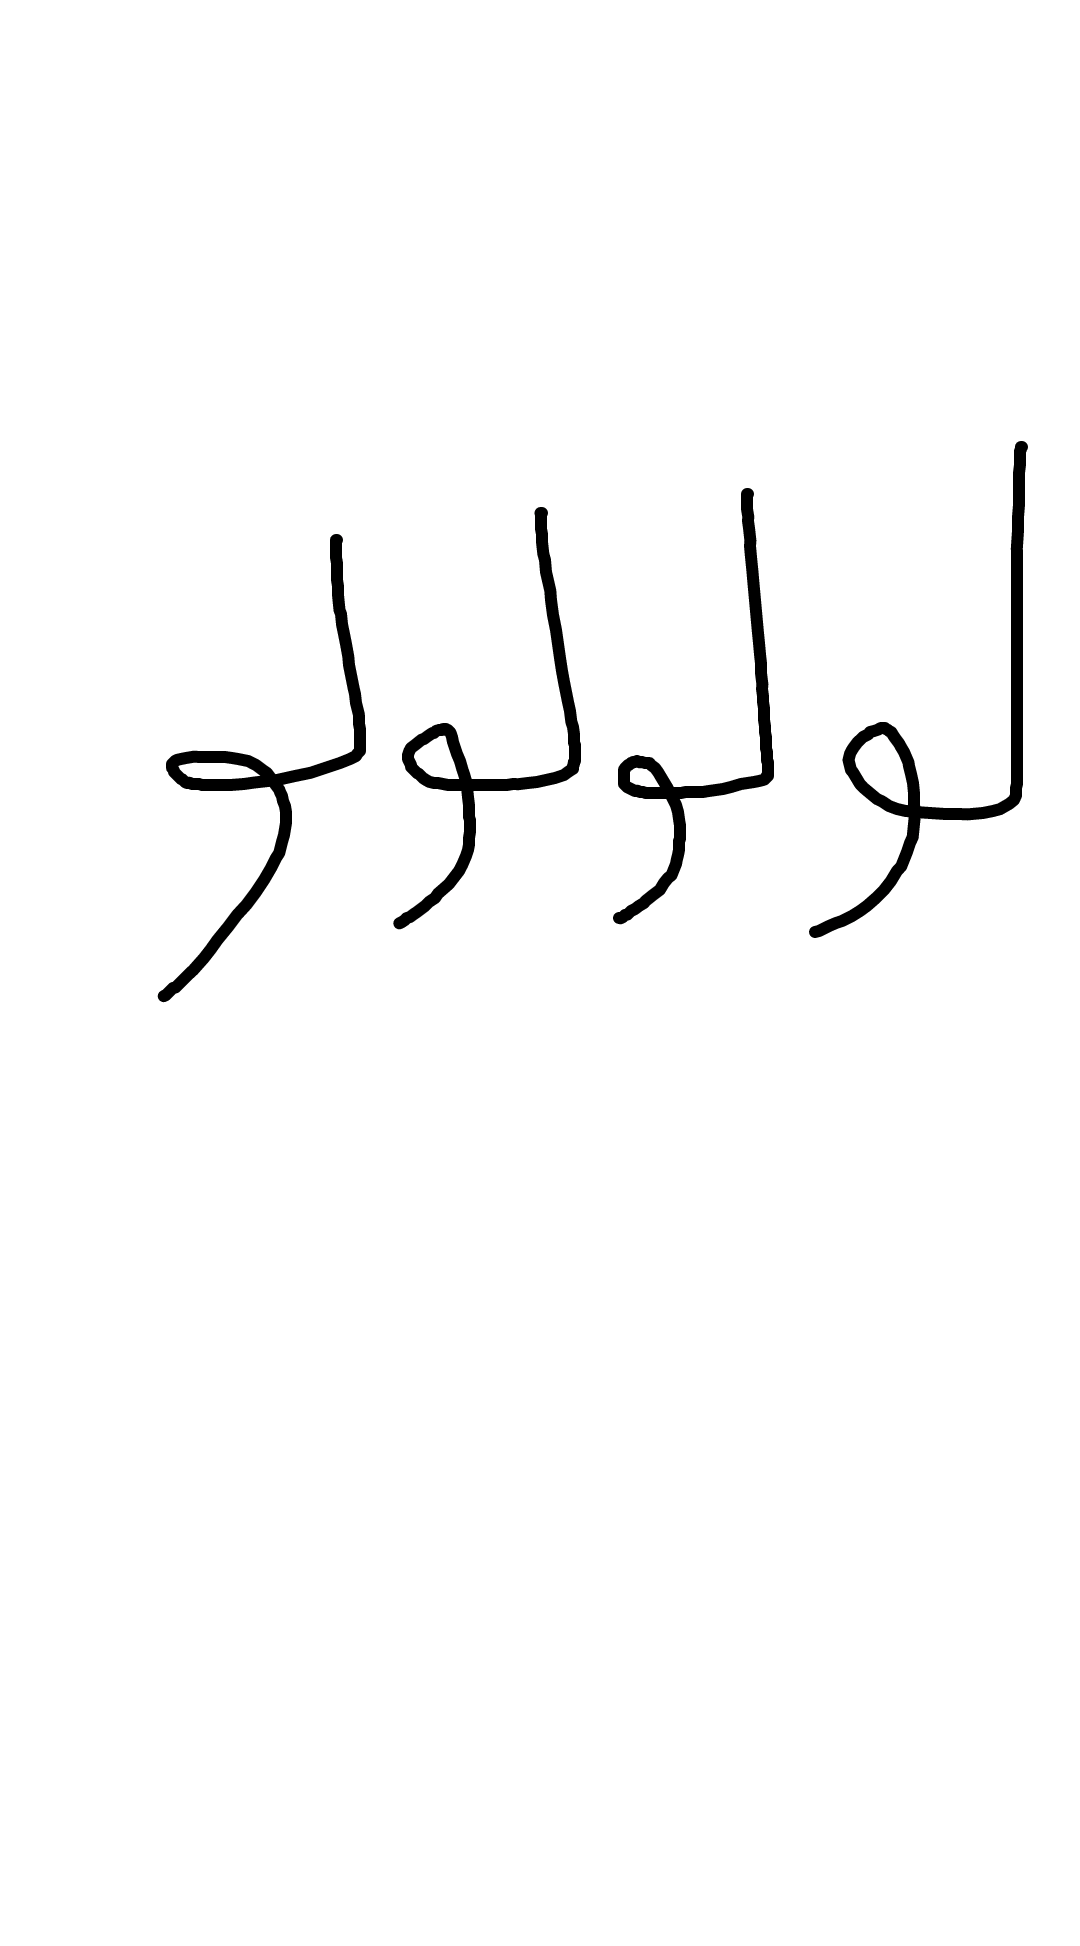 لولولولو